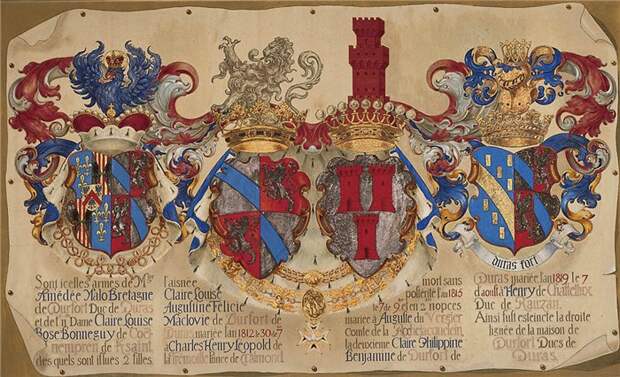 duras fort
Sont icelles armes de Mgr
Amédée Malo Bretagne
de Durfort Duc de Duras
et de Dame Claire Louise
Rose Bonneguy de Coet
nempren de K saint
des quels sont issues 2 filles
l'aisnée
Claire Louise
Augustine Félicie
Maclovie de Durfort de
Duras mariée l'an 1812 le 30 7
à Charles Henry Leopold de
la Tremoille Prince de Talmond
mort sans
postérité l'an 1815
le 7 de 9 en 2 nopces
mariée à Auguste du Vergier
Comte de la Rochejacquelein
la deuxième Claire Philippine
Benjamine de Durfort de
Duras mariée l'an 1819 le 7
d'août à Henry de Chastellux
Duc de Rauzan.
Ainsi fust esteincte la droite
lignée de la maison de
Durfort Ducs de
Duras.